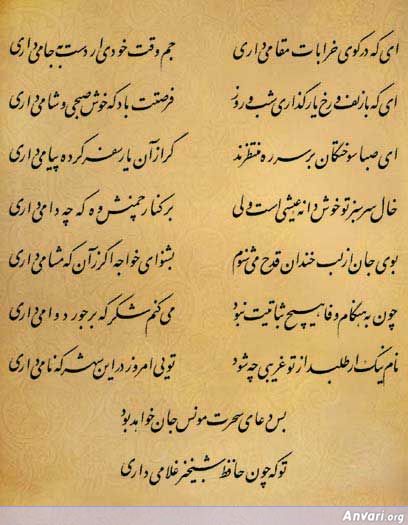 ای که در کوی خرابات مقامی داری جم وقت خودی ار دست به جامی داری
ای که با زلف و رخ یار گذاری شب و روز فرصتت باد که خوش صبحی و شامی داری
ای صبا سوختگان بر سر ره منتظرند گر از آن یار سفر کرده پیامی داری
خال سرسبز تو خوش دانه عیشی است ولی بر کنار چمنش وه که چه دامی داری
بوی جان از لب خندان قدح می شنوم بشنو ای خواجه اگر زان که مشامی داری
چون به هنگام وفا هیچ ثباتیت نبود می کنم شکر که بر جور دوامی داری
نام نیک ار طلبد از تو غریبی چه شود تویی امروز در این شهر که نامی داری
بس دعای سحرت مونس جان خواهد بود
تو که چون حافظ شبخیز غلامی داری
Anvari.org